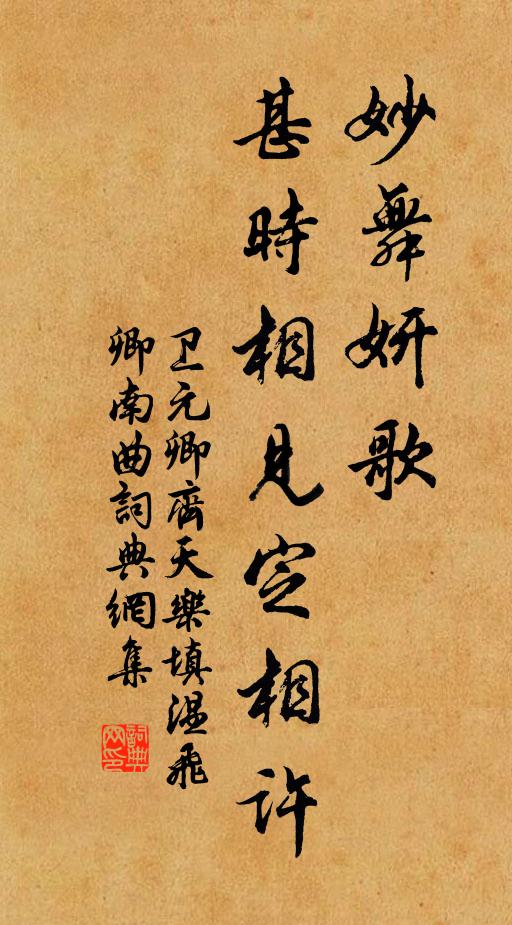 妙舞妍歌
甚時相見定相許
卫元卿齊天樂填温飛
卿南曲詞典網集
詞典
网印